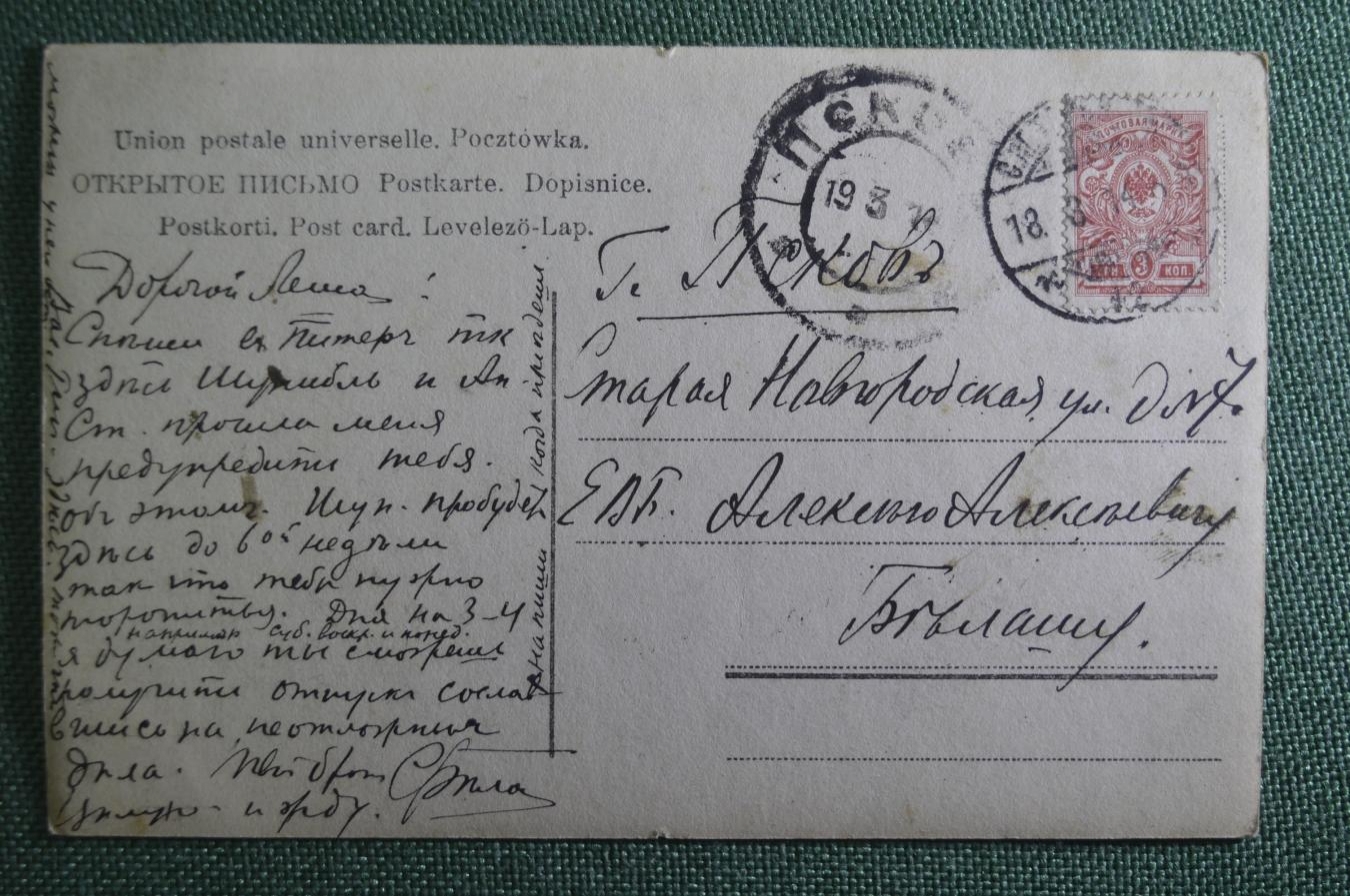 Union postale universelle. Pocztówka.
ОТКРЫТОЕ ПИСЬМО Postkarte. Dopisnice.
Postkorti. Post card. Levelező-Lap.
Дорогой Леша!
Спѣши въ Питеръ тк
здѣсь и Ан.
Ст. просила меня
предупредить тебя.
объ этомъ. Шун. пробудет
здѣсь до 6ой недѣли
так что тебѣ нужно
торопиться. Дня на 3-4
суб. воскр. и понед.
я думаю ты сможешь
получить отпускъ сослав
шись на неотложныя
дѣла. Твой брат
Цѣлую и жду.
напиши когда приѣдеш.
ПСКОВ
19 3
18 3 14
ПОЧТОВАЯ МАРКА
3 КОП
Г. Псковъ
Старая Новгородская ул. д №7.
ЕВБ. Алексѣю Алексѣевичу